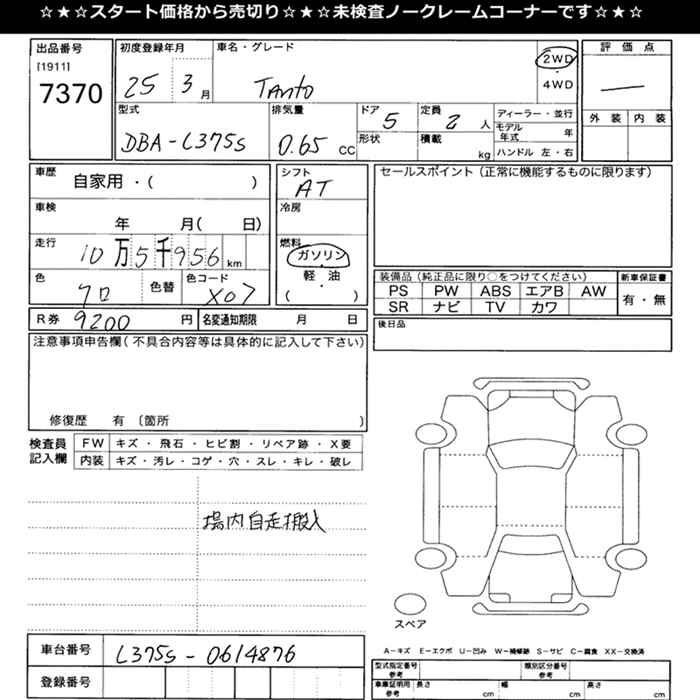 ☆★☆スタート価格から売切り☆★☆未検査ノークレームコーナーです☆★☆
出品番号
[1911]
7370
初度登録年月
25 3 月
車名・グレード
Tanto
2WD
4WD
評価点
—
外装 内装
型式
DBA-L375S
排気量
0.65 CC
ドア 5
形状
定員 2 人
積載 kg
ディーラー・並行
モデル年式 年
ハンドル 左・右
車歴 自家用・( )
車検 年 月( 日)
走行 10万5千956 km
色 クロ 色替
色コード X07
シフト AT
冷房
燃料
ガソリン
軽・油
( )
セールスポイント(正常に機能するものに限ります)
装備品(純正品に限り○をつけてください)
PS PW ABS エアB AW
SR ナビ TV カワ
新車保証書
有・無
R券 9200 円
名変通知期限 月 日
後日品
注意事項申告欄(不具合内容等は具体的に記入して下さい)
修復歴 有 〔箇所 〕
検査員記入欄
FW キズ・飛石・ヒビ割・リペア跡・X要
内装 キズ・汚レ・コゲ・穴・スレ・キレ・破レ
場内自走搬入
スペア
A−キズ E−エクボ U−凹み W−補修跡 S−サビ C−腐食 XX−交換済
車台番号 L375S-0614876
登録番号
型式指定番号 参考
類別区分番号 参考
車庫証明用 参考
長さ cm 幅 cm 高さ cm